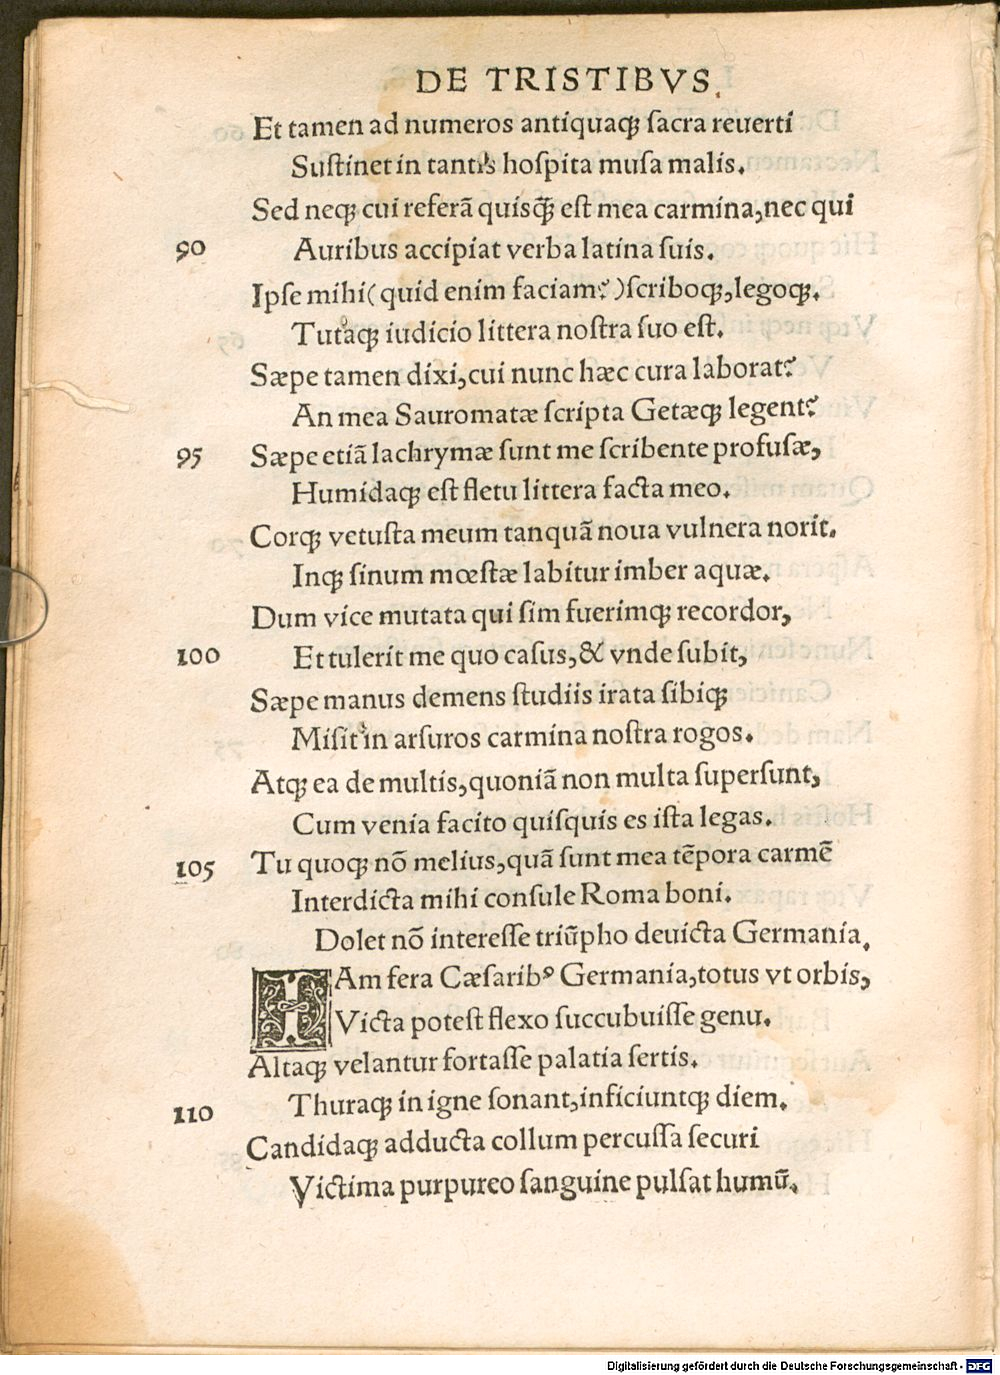 DE TRISTIBVS.
Et tamen ad numeros antiquaqꝫ ſacra reuerti
Suſtinet in tantis hoſpita muſa malis.
Sed neqꝫ cui referã quisq̃ꝫ eſt mea carmina, nec qui
90 Auribus accipiat verba latina ſuis.
Ipſe mihi (quid enim faciam?) ſcriboqꝫ, legoqꝫ.
Tutaqꝫ iudicio littera noſtra ſuo eſt.
Sæpe tamen dixi, cui nunc hæc cura laborat?
An mea Sauromatæ ſcripta Getæqꝫ legent?
95 Sæpe etiã lachrymæ ſunt me ſcribente profuſæ,
Humidaqꝫ eſt fletu littera facta meo.
Corqꝫ vetuſta meum tanquã noua vulnera norit.
Inqꝫ ſinum mœſtæ labitur imber aquæ.
Dum vice mutata qui ſim fuerimqꝫ recordor,
100 Et tulerit me quo caſus, & vnde ſubit,
Sæpe manus demens ſtudiis irata ſibiqꝫ
Miſit in arſuros carmina noſtra rogos.
Atqꝫ ea de multis, quoniã non multa ſuperſunt,
Cum venia facito quiſquis es iſta legas.
105 Tu quoqꝫ nõ melius, quã ſunt mea tẽpora carmẽ
Interdicta mihi conſule Roma boni.
Dolet nõ intereſſe triũpho deuicta Germania.
IAm fera Cæſaribꝰ Germania, totus vt orbis,
Victa poteſt flexo ſuccubuiſſe genu.
Altaqꝫ velantur fortaſſe palatia ſertis.
110 Thuraqꝫ in igne ſonant, inficiuntqꝫ diem.
Candidaqꝫ adducta collum percuſſa ſecuri
Victima purpureo ſanguine pulſat humũ.
Digitalisierung gefördert durch die Deutsche Forschungsgemeinschaft - DFG